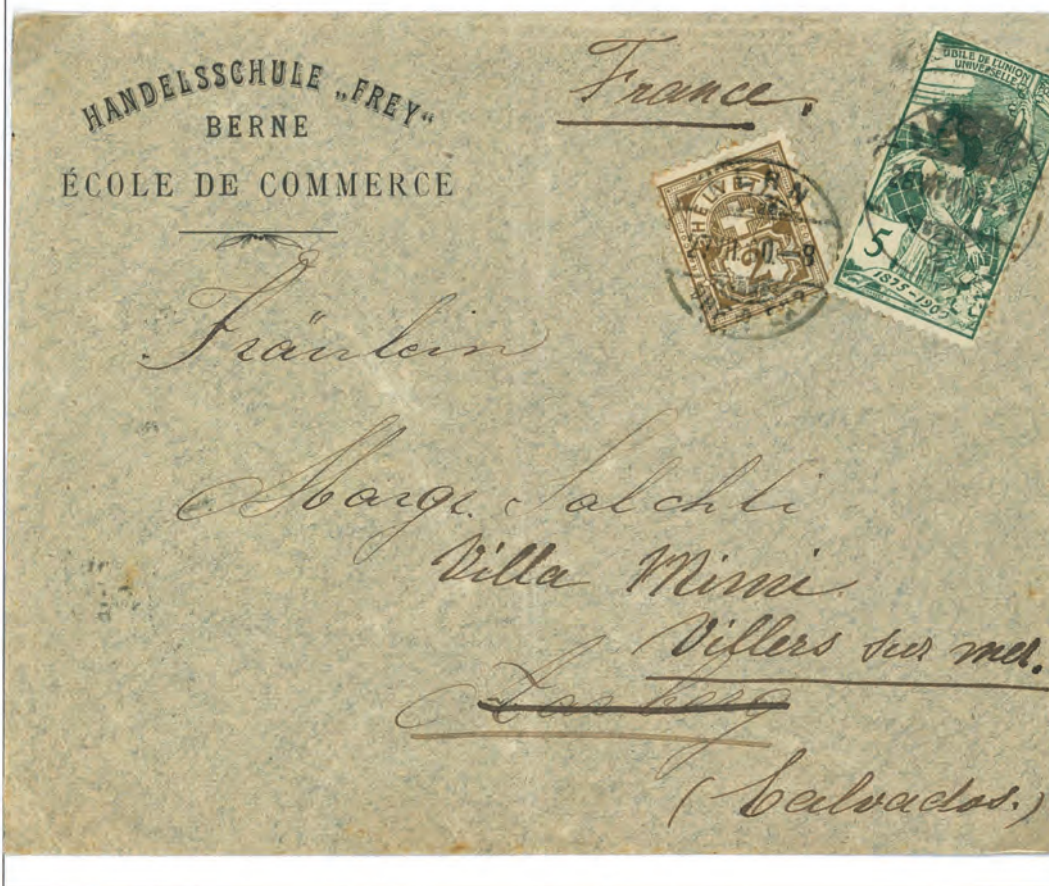 HANDELSSCHULE „FREY“
BERNE
ÉCOLE DE COMMERCE
France.
HELVETIA
2
BILE DE L'UNION
UNIVERSELLE
5
1875-1900
Fräulein
Margr. Salchli
Villa Mimi
Villers sur mer.
Aarberg
(Calvados.)